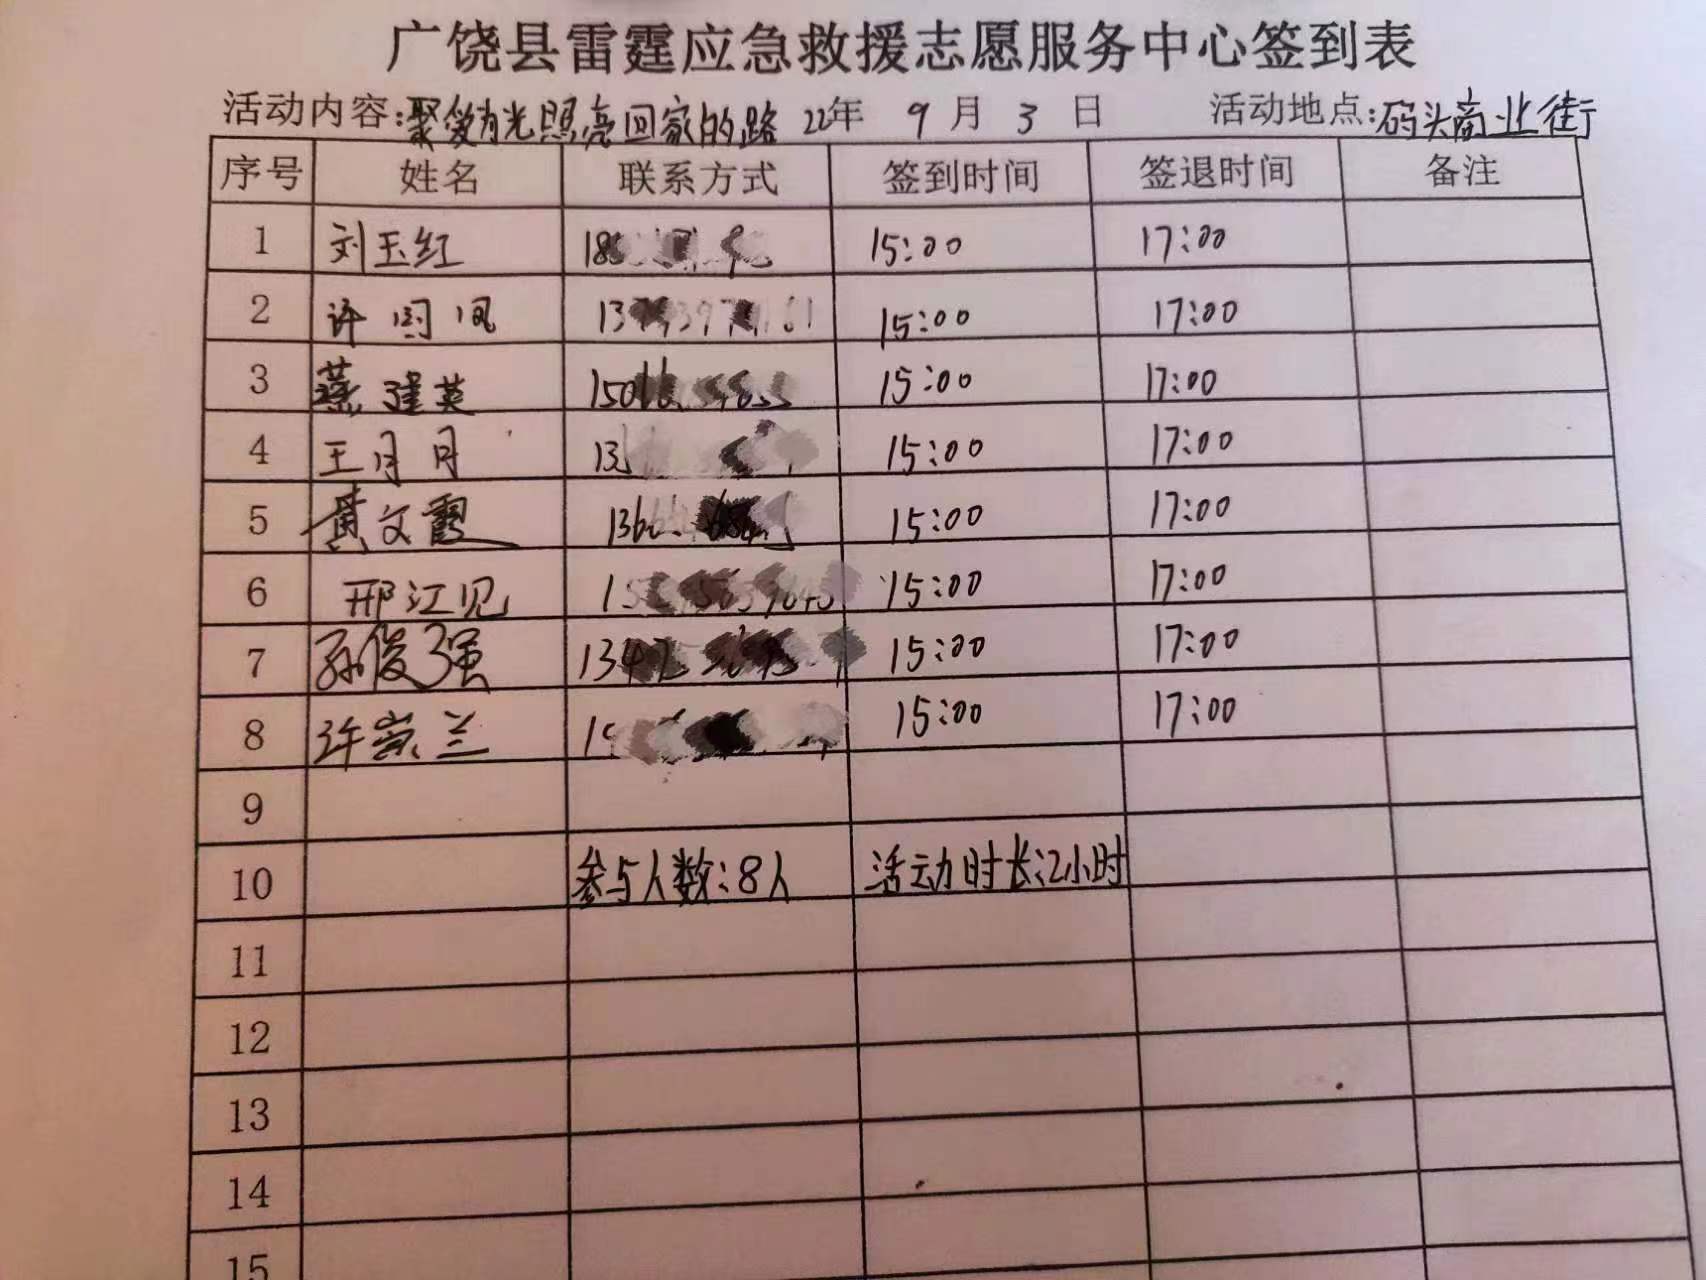 广饶县雷霆应急救援志愿服务中心签到表
活动内容:聚爱为光照亮回家的路 22年 9月 3日 活动地点:码头商业街
序号 姓名 联系方式 签到时间 签退时间 备注
1 刘玉红 15:00 17:00
2 许国凤 15:00 17:00
3 燕建英 15:00 17:00
4 王月丹 15:00 17:00
5 黄文霞 15:00 17:00
6 邢江见 15:00 17:00
7 孙俊强 15:00 17:00
8 许 兰 15:00 17:00
9
10 参与人数:8人 活动时长:2小时
11
12
13
14
15